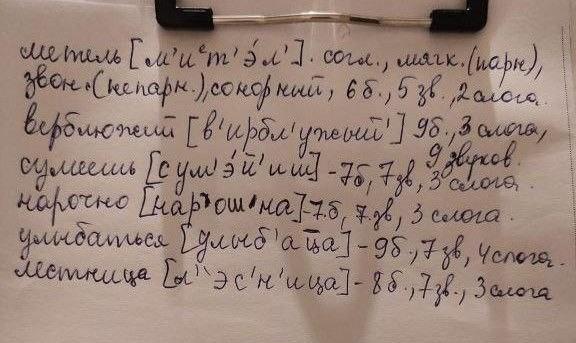 метель [м'иᵉт'э́л']. согл., мягк.(парн),
звон.(непарн.), сонорный, 6 б., 5 зв., 2 слога.
верблюжий [в'ирбл'ужый'] 9б., 3 слога,
9 звуков.
сумеешь [сум'э́й'иш] - 7б, 7 зв, 3 слога.
нарочно [нарошна] - 7.б, 7. зв, 3 слога.
улыбаться [улыб'аца] - 9б., 7 зв, 4 слога.
лестница [л'эс'н'ица] - 8 б., 7зв., 3 слога